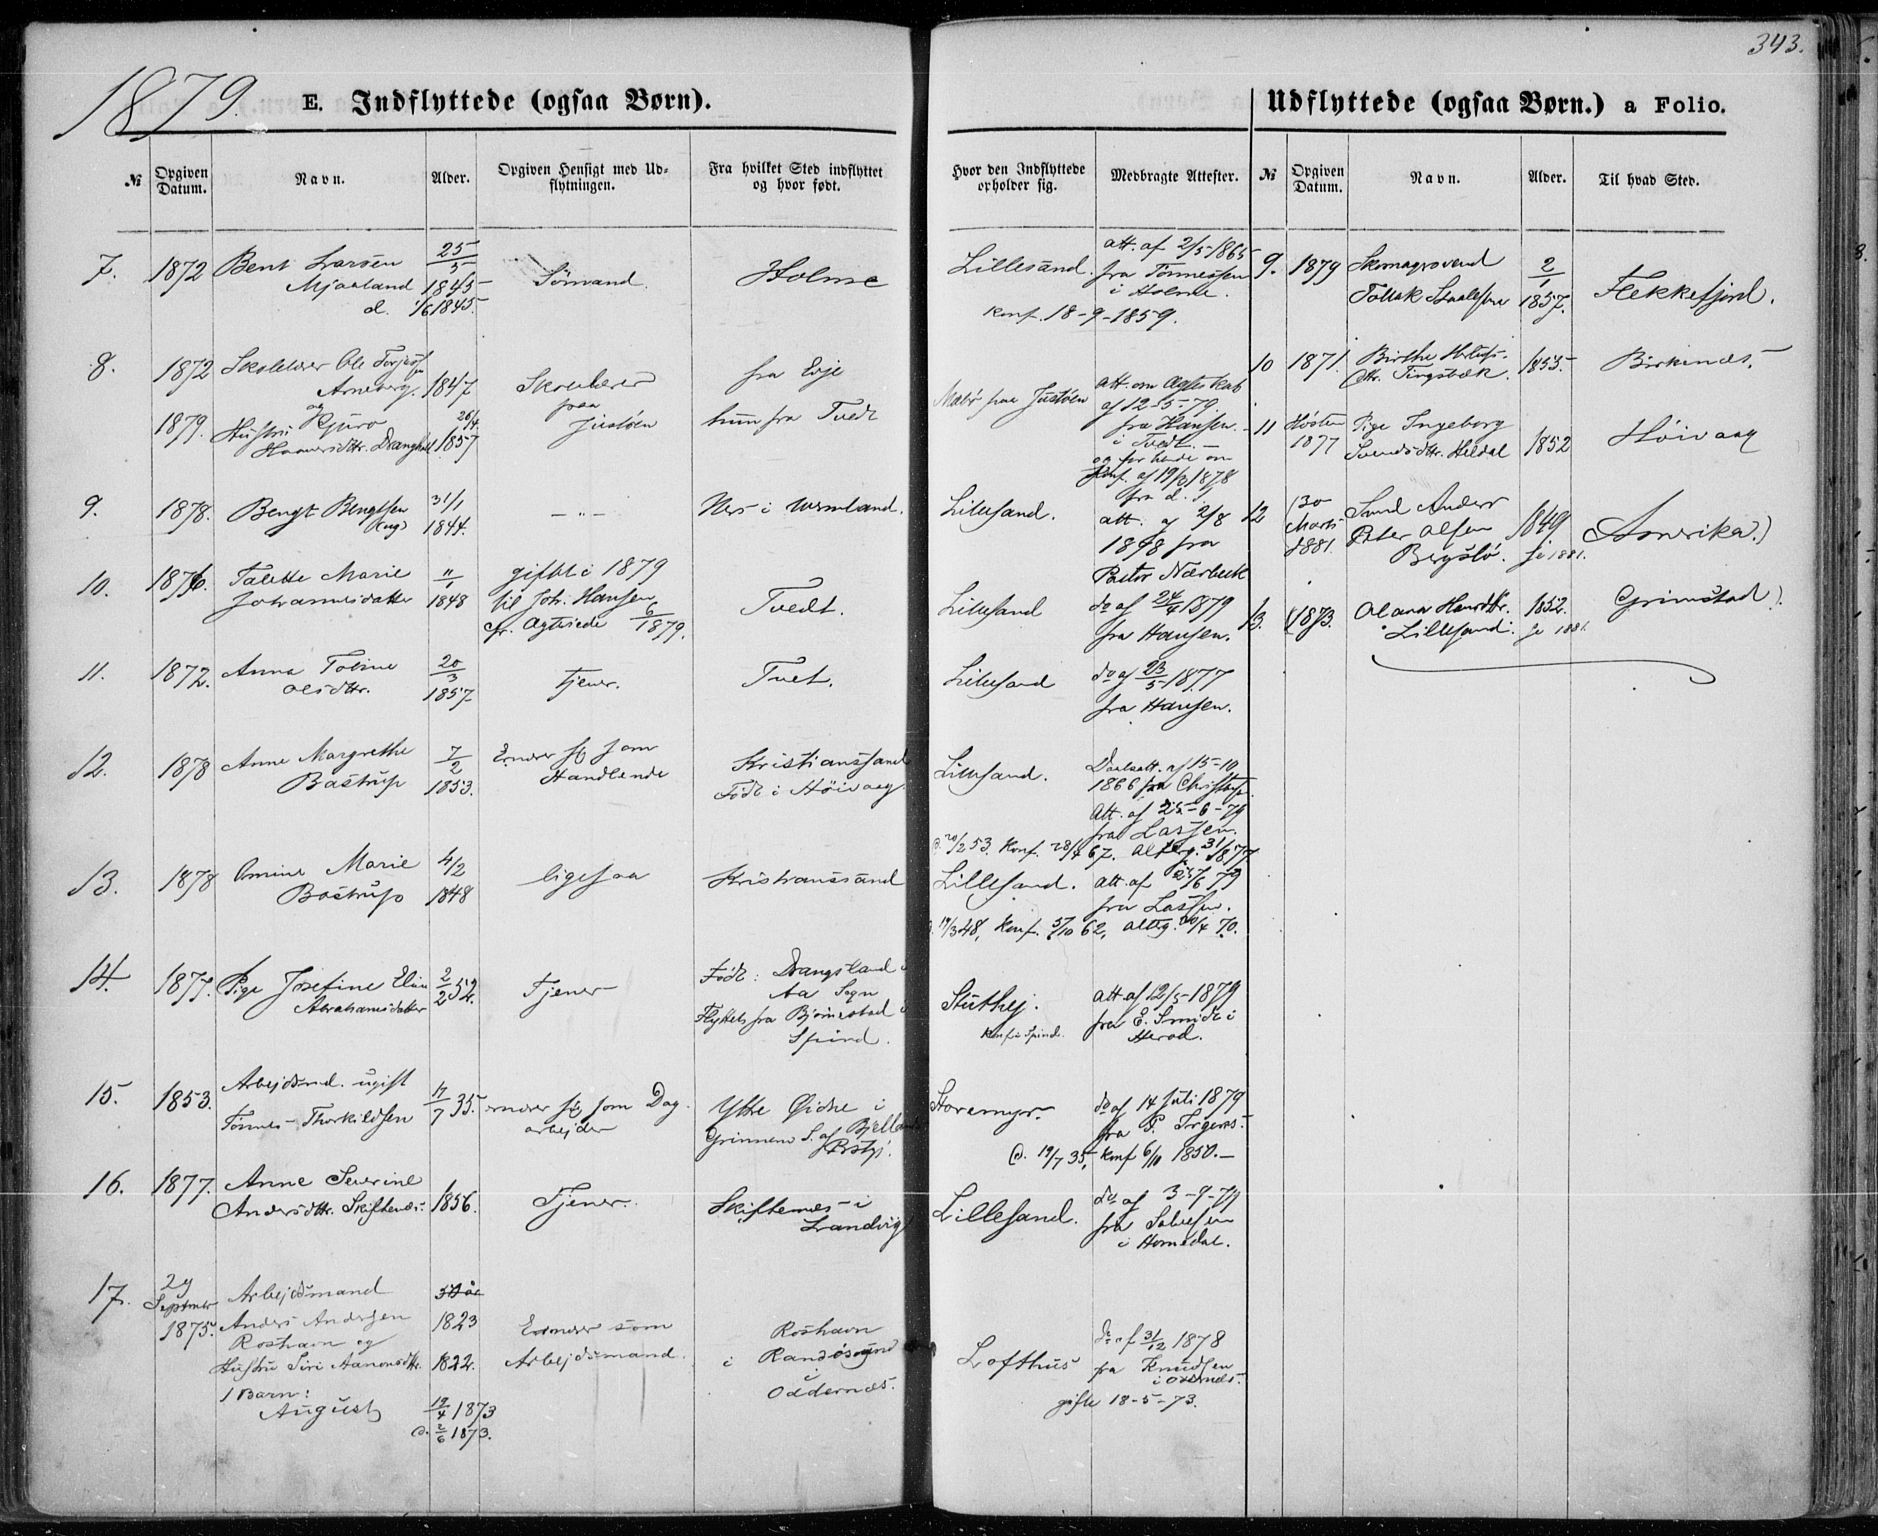 343.
1879.
E. Indflyttede (ogsaa Børn).
Udflyttede (ogsaa Børn.) a Folio.
№
Opgiven Datum.
Navn.
Alder.
Opgiven Hensigt med Udflytningen.
Fra hvilket Sted indflyttet og hvor født.
Hvor den Indflyttede opholder sig.
Medbragte Attester.
№
Opgiven Datum.
Navn.
Alder.
Til hvad Sted.
7. 1872 Bent Larsen
Mjaaland
d. 1/6 1845.
25/5 1845
Sömand.
Holme
Lillesand.
att. af 2/5 1865
fra Tönnessen
i Holme.
Konf. 18-9-1859.
8. 1872 Skolelærer Ole
Arneberg. 1847
og
1879. Hustru Gjuro 26/4
1857
paa
Justöen
fra Evje
hun fra Tvedt
paa Justöen
att. om Ægteskab
af 12-5-79.
fra Hansen
i Tvedt.
og for hende om
Konf. af 19/3 1878
fra d. S.
9. 1878. Bengt Bengtsen
(ug)
31/1
1844.
- " -
Nes i Wermland.
Lillesand.
att. af 2/8
1878 fra
Pastor Nærbeck
10. 1876. Talette Marie
Johannesdatter
11/1
1848
gift i 1879
til Joh. Hansen
cfr. Ægteviede 6/1879.
Tvedt.
Lillesand
do af 24/4 1879
fra Hansen.
11. 1872. Anna Tobine
Olsdttr.
20/3
1857
Tjener.
Tvet.
Lillesand
do af 23/5 1877
fra Hansen.
12. 1878 Anne Margrethe
Bastrup
7/2
1853.
Ernærer sig som
Handlende
Kristianssand
Född i Höivaag
Lillesand.
Daabsatt. af 15-10
1866 fra
Att. af 25-6-79
fra Lassen.
Konf. 28/4 67. Altg. 31/
13. 1878 Amine Marie
Bastrup
4/2
1848
ligesaa
Kristianssand
Lillesand.
att. af 25/6 79
fra Lassen.
19/3 48, Konf. 5/10 62, altg. 4 70.
14. 1877. Pige Josefine Eline
Abrahamsdatter
2/2 52.
Tjener
Född: Drangsland i
Aa Sogn
Flyttet fra Björnestad i
Spind.
Stuthej.
Konf i Spind.
att af 12/5 1879
fra E. Smidt i
Herad.
15. 1853. Arbejdsmd. ugift
Tönnes Thorkildsen
17/7 35.
ernærer sig som Dag
arbejder
Ytre Øidne i
Grinnem S. af Bjelland
Prstgj.
Storemyr.
do af 14 Juli 1879
fra P.
D. 19/7 35, Konf 6/10 1850.
16. 1877. Anne Severine
Andersdttr. Skiftenes.
1856.
Tjener.
Skiftenes i
Landvig
Lillesand.
do af 3-9-79
fra Salvesen
i Homedal.
17. 29
September
1875.
Arbejdsmand
Anders Andersen
Roshavn og
Hustru Siri Aanonsdttr.
1 Barn:
August
1823
1822.
19/4 1873
D. 2/6 1873.
Ernærer som
Arbejdsmand.
Roshavn
i Randösund
i
Oddernæs.
Lofthus
Do af 31/12 1878
fra Knudsen
i Oddernæs.
gifte 18-5-73.
9. 1879 Skomagersvend
Tollak Staalesen
2/1
1857.
Flekkefjord.
10 1871. Birthe
Tingsbæk.
1853.
Birkenæs.
11 Hösten
1877
Pige Ingeborg
Svendsdttr. Heldal
1852
Höivaag
12 (30
Marts
1881.
Smed Anders
Peter Olsen
Bergslö.
1849.
fo 1881.
Amerika.)
13. (1873. Olana Hansdttr.
Lillesand.
1852.
fo 1881.
Grimstad).